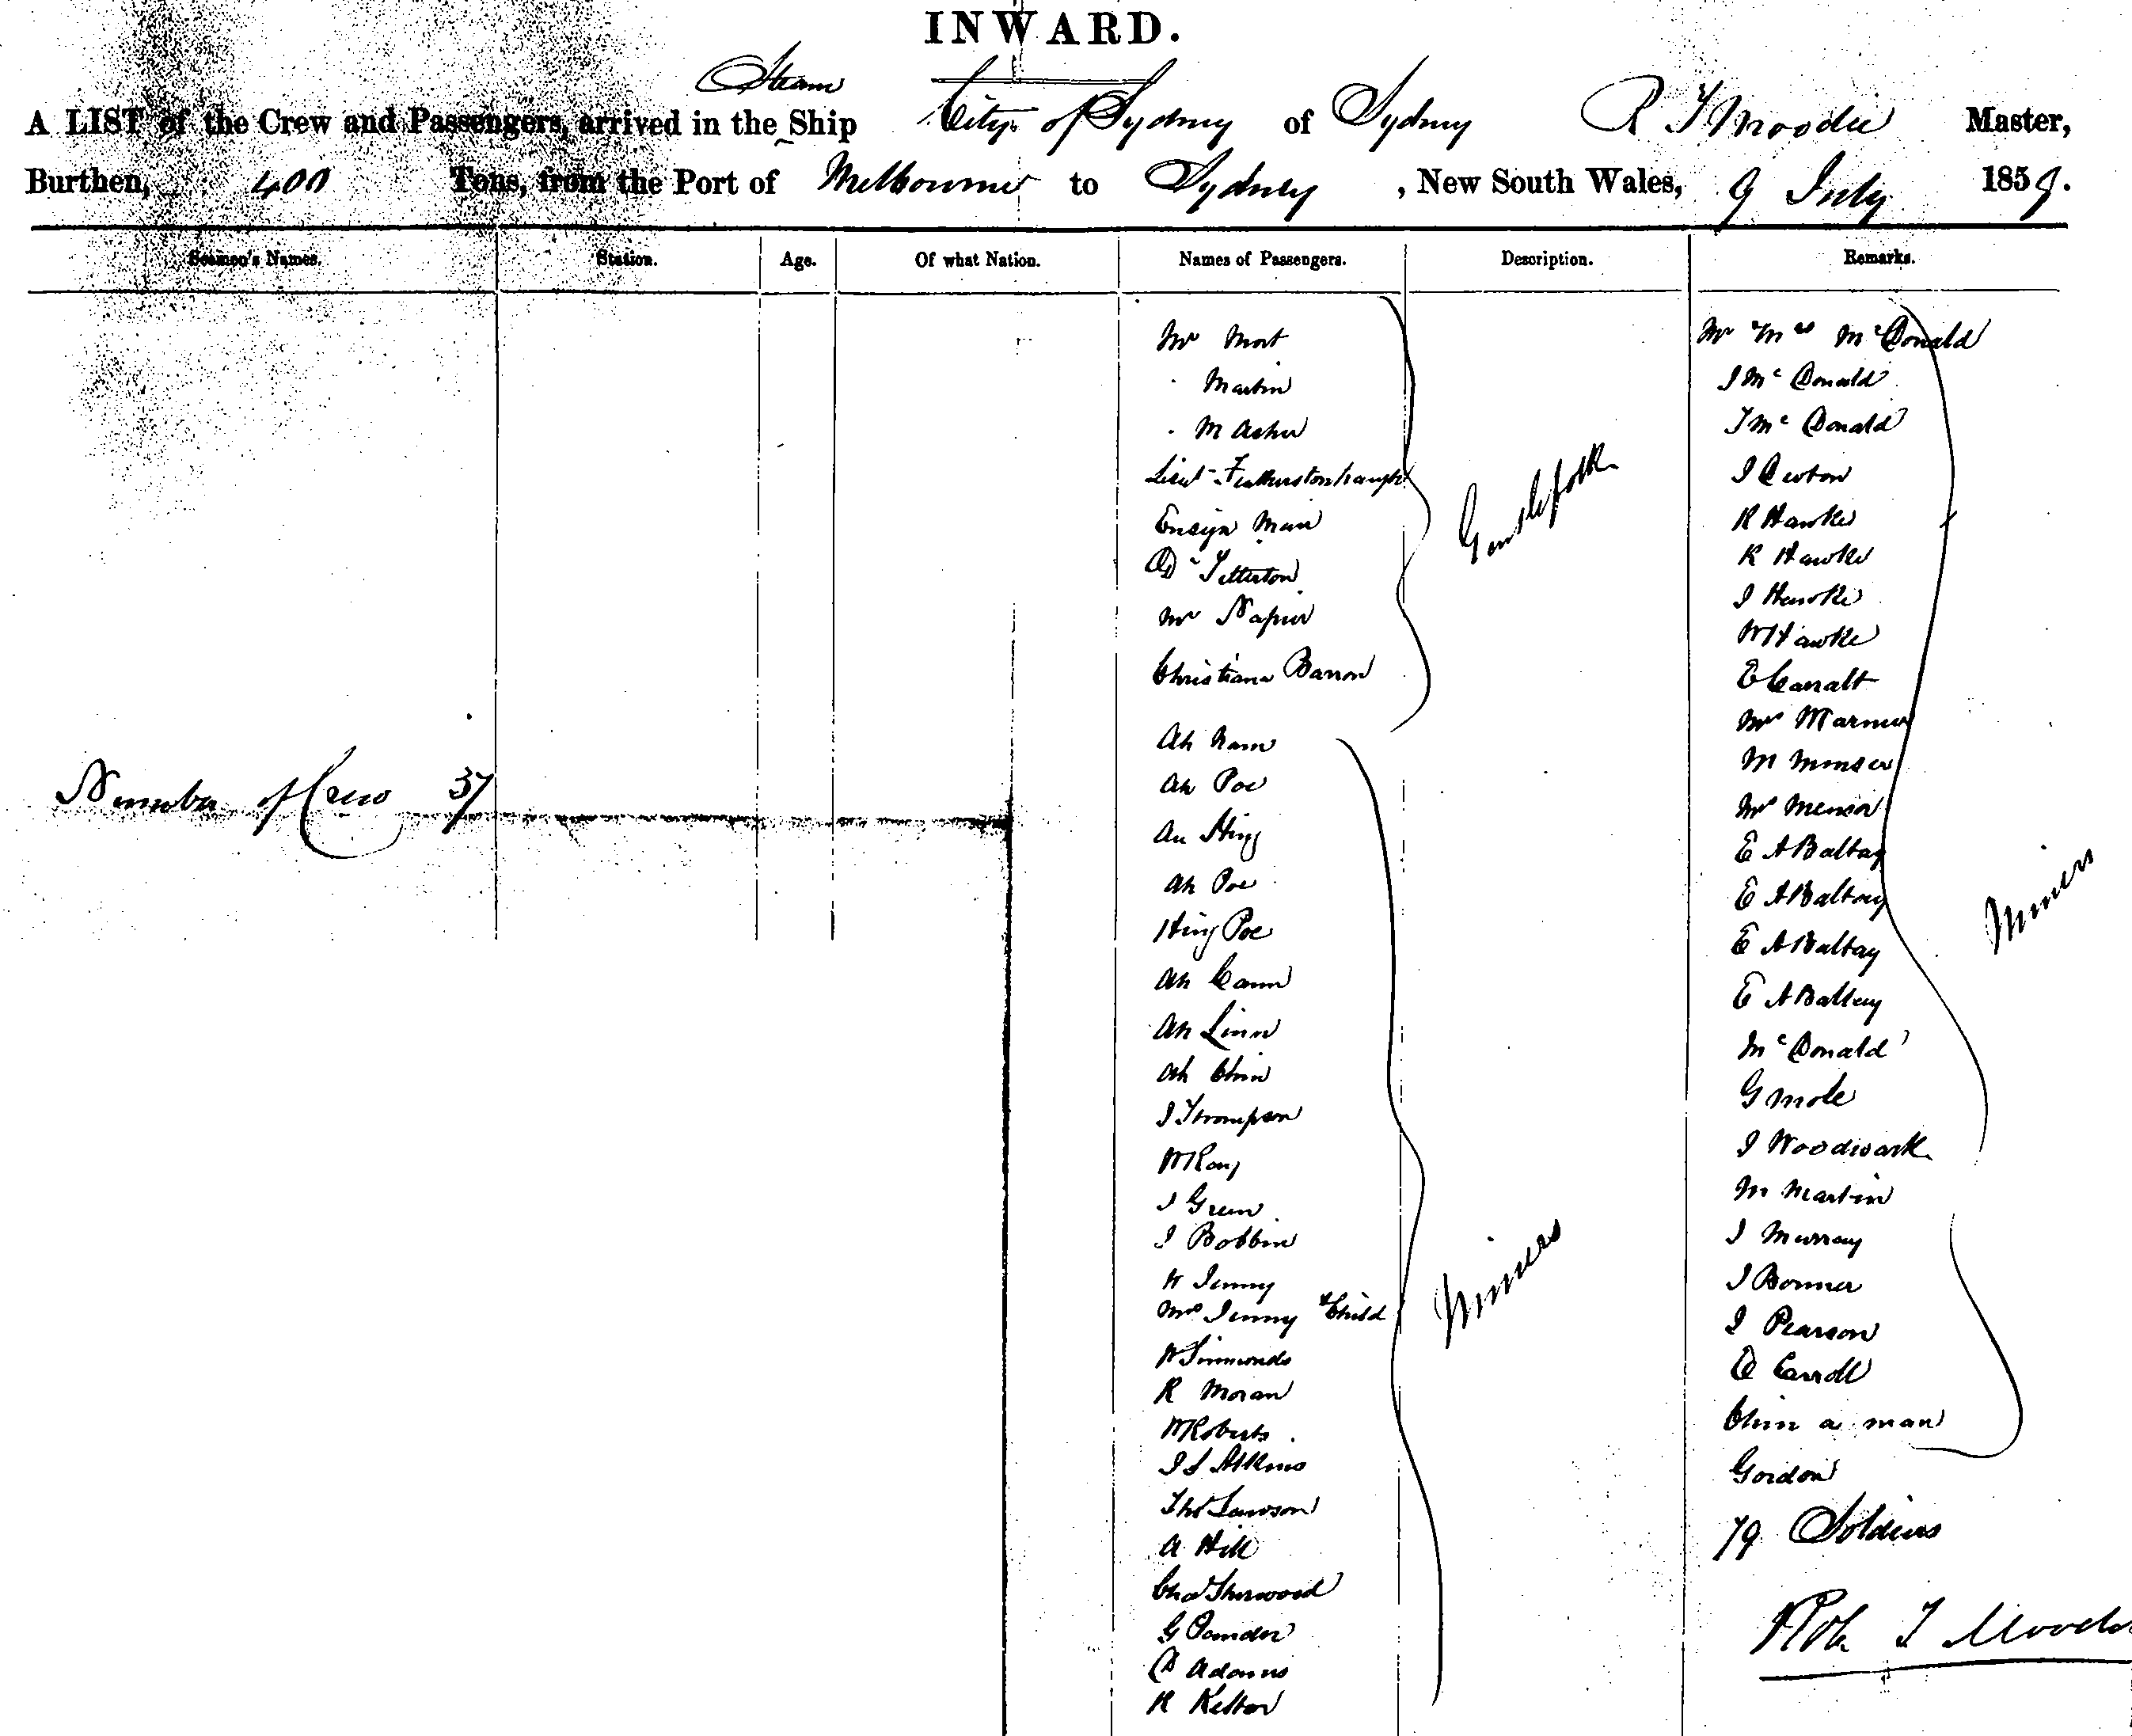 INWARD.
Steam
A LIST of the Crew and Passengers, arrived in the Ship City of Sydney of Sydney R T Moodie Master,
Burthen, 400 Tons, from the Port of Melbourne to Sydney, New South Wales, 9 July 1859.
Seamen's Names. Station. Age. Of what Nation. Names of Passengers. Description. Remarks.
Number of Crew 37
Mr Mort
" Martin
" M Asher
Lieut Featherstonhaugh
Ensign Mair
Dr Titterton
Mr Napier
Christiana Barron
Gentlefolk
Ah Nam
Ah Poe
Au Hing
Ah Poe
Hing Poe
Ah Cann
Ah Linn
Ah Chin
J Thompson
W Ray
J Green
J Bobbin
W Jenny
Mrs Jenny & Child
W Simmonds
R Moran
W Roberts
J S Atkins
Thos Lawson
A Hill
Chas Sherwood
G
Adams
R
Miners
Mr & Mrs McDonald
J McDonald
T McDonald
J
R Hawke
R Hawke
J Hawke
W Hawke
E
Mrs Warner
M
Mrs
E A Baltay
E A Baltay
E A Baltay
E A Baltay
McDonald
G Mole
J Woodwark
M Martin
J Murray
J Bonner
J Pearson
Carroll
Chin a man
Gordon
Miners
79 Soldiers
Rob T Moodie